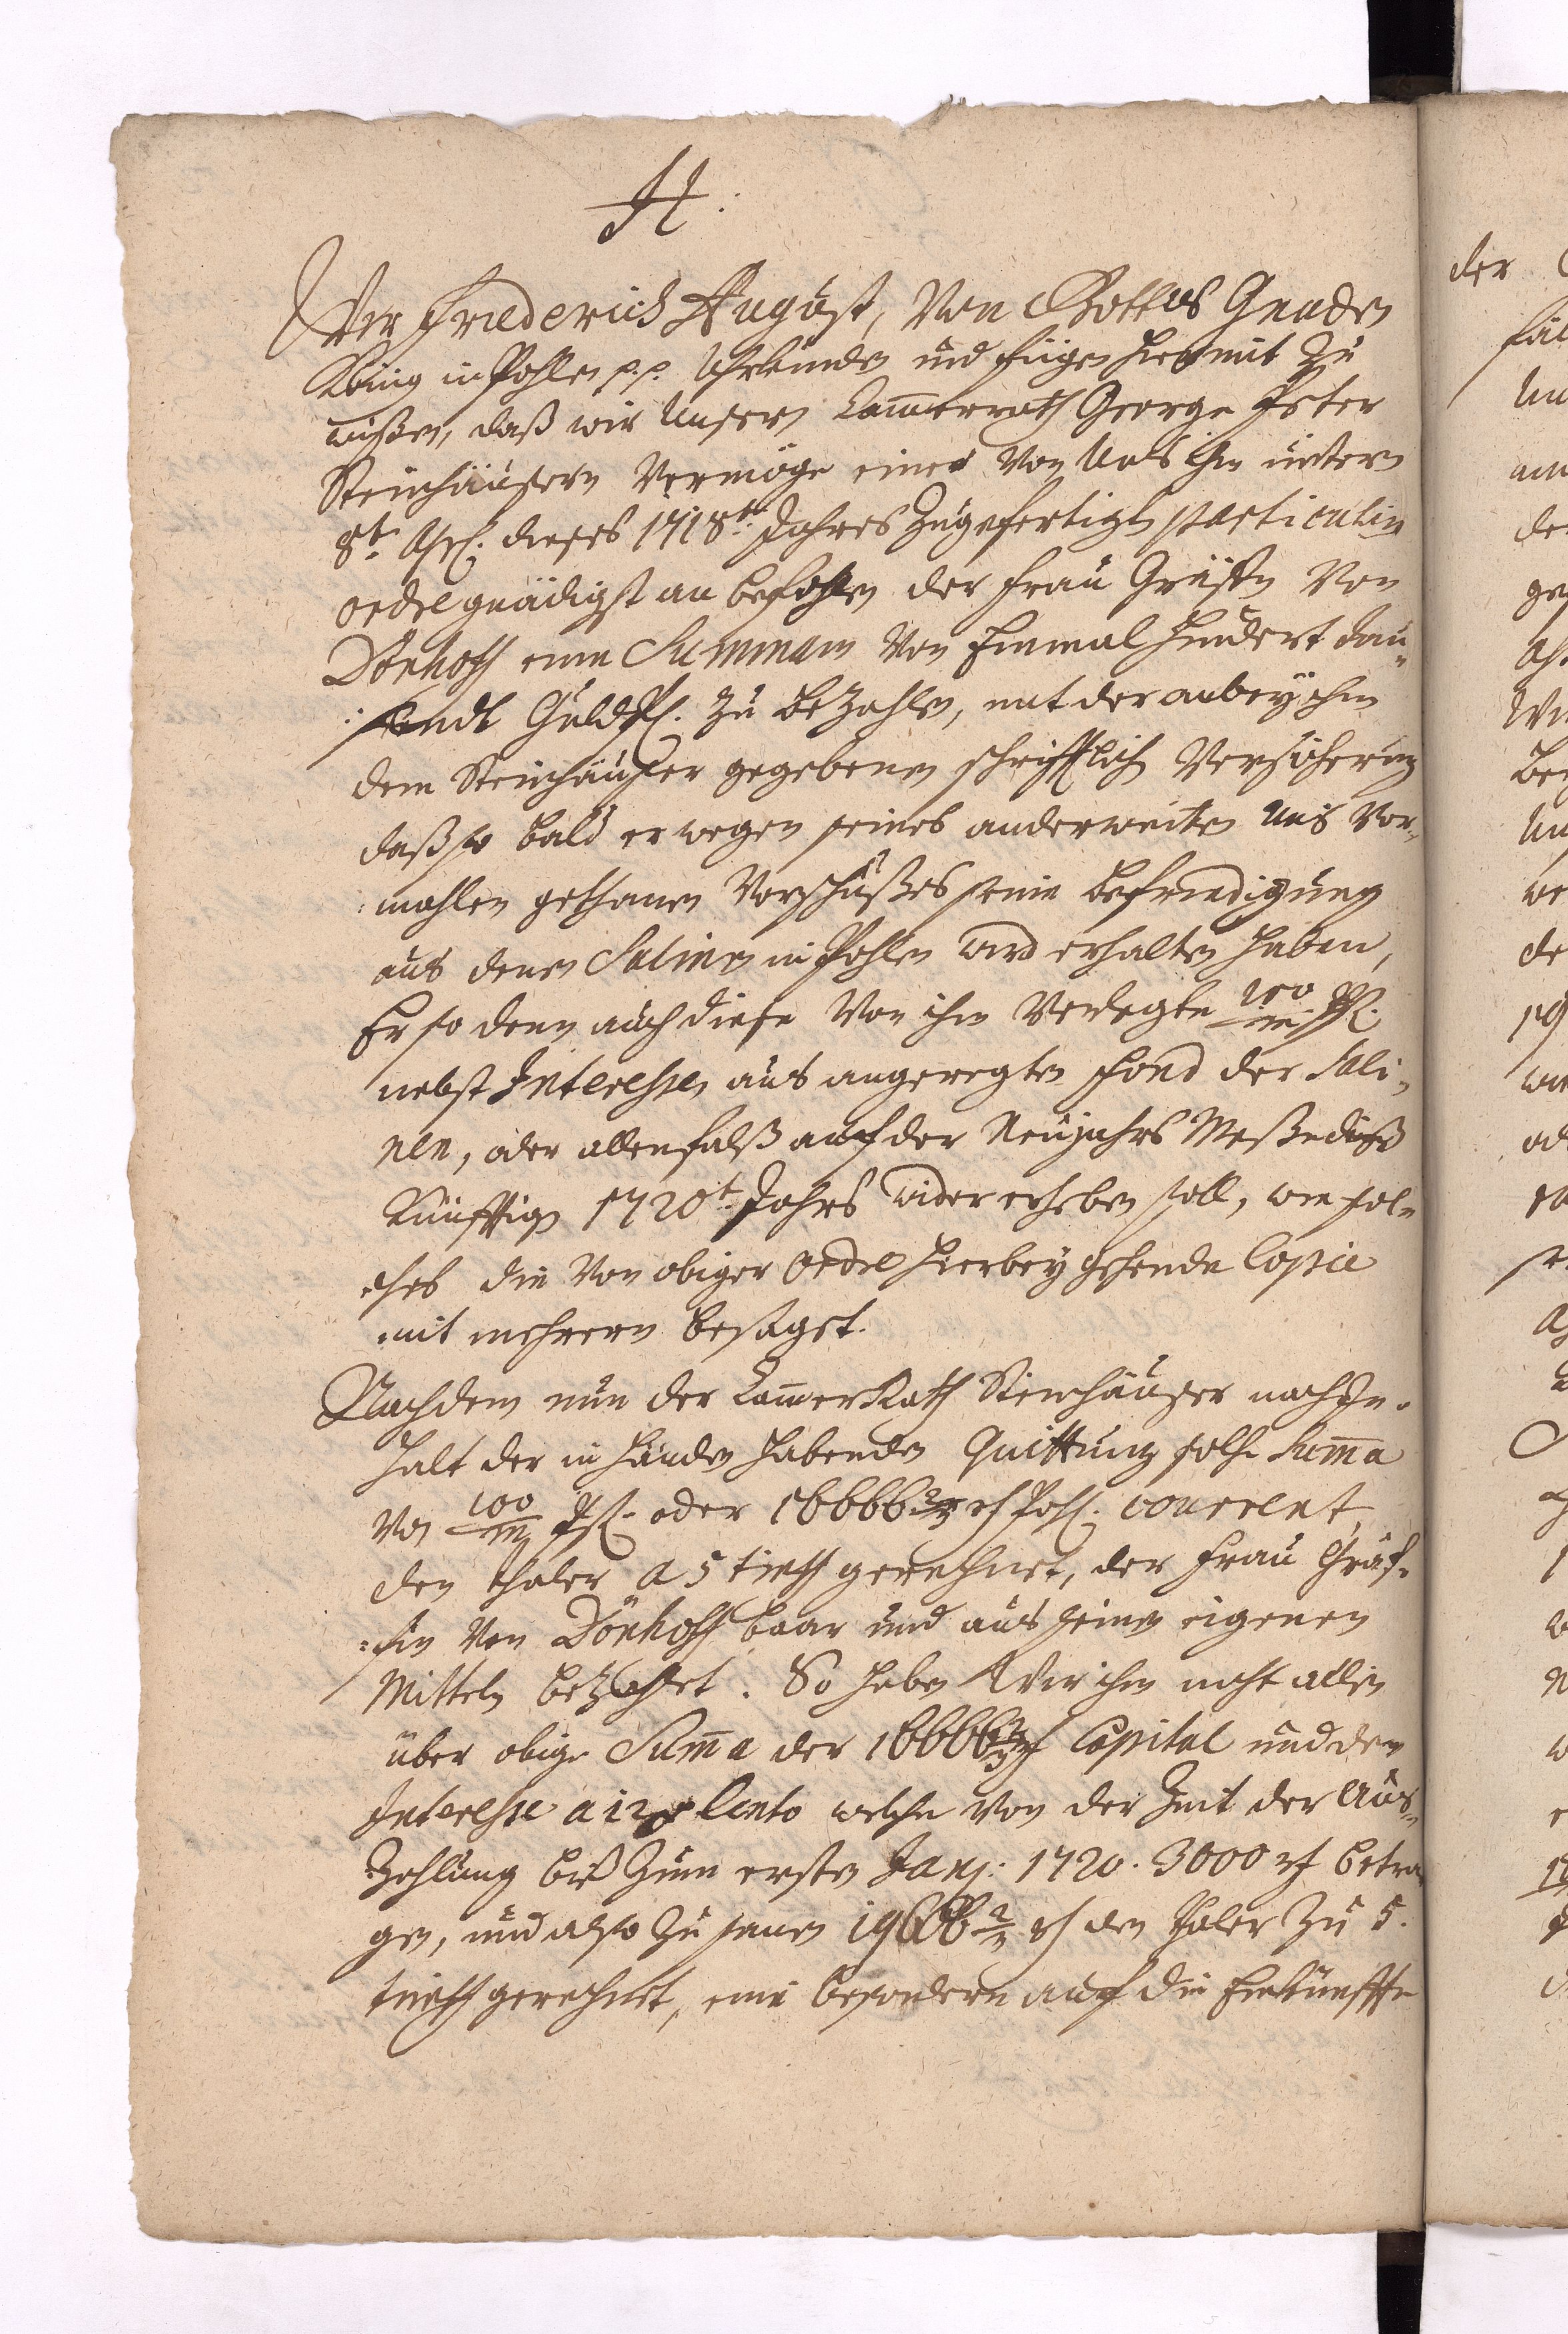 H.
Wir Friederich August, Von Gottes Gnaden
König in Pohlen p. p. Uhrkunden und fügen hiermit zu
wißen, daß wir Unsern Cammerrath George Peter
Steinhäusern Vermöge einer von Uns ihm untern
8t. dieses 1718t. Jahres zugefertigte particulir
ordre gnädigst an befohlen der Frau Gräfin Von
Dönhoff eine Summam Von Einmal hundert tau-
:sendt Guld Pf. zu bezahlen, mit der anbey ihm
dem Steinhäuser gegebenen schrifftlich Versicherung
daß so bald er wegen seines anderweiten uns vor-
:mahlen gethanen Vorschußes seine befriedigung
aus denen Salinen in Pohlen wird erhalten haben,
Er so denn auch diese Von ihm Verlegte 100/m Pf.
nebst Interessen aus angeregten fond der Sali-
nen, oder allenfalß auf der Neujahrs Meße dieß
künfftig 1720t. Jahrs wider erheben soll, wie sol-
ches die Von obiger ordre hierbey gehende Copie
mit mehrern besaget.
Nachdem nun der Cammer Rath Steinhäuser nach In-
halt der in händen habenden Quittung solche Summa
von 100/m Pf. oder 16666 2/3 rh Pohl. courrent,
den thaler a 5 tinff gerechnet, der Frau Gräf-
:fin Von Dönhoff baar und aus seinen eigenen
Mitteln bezahlet. So haben Wir ihm nicht allein
über obige Summa der 16666 2/3 rh Capital und den
Interesse a 12 p Cento welche von der Zeit der Aus-
Zahlung biß zum ersten Janj: 1720. 3000 rh betra
gen, und also zusammen 19666 2/3 rh den thaler zu 5.
tinff gerechnet, eine besondere auf die Einkünffte
der